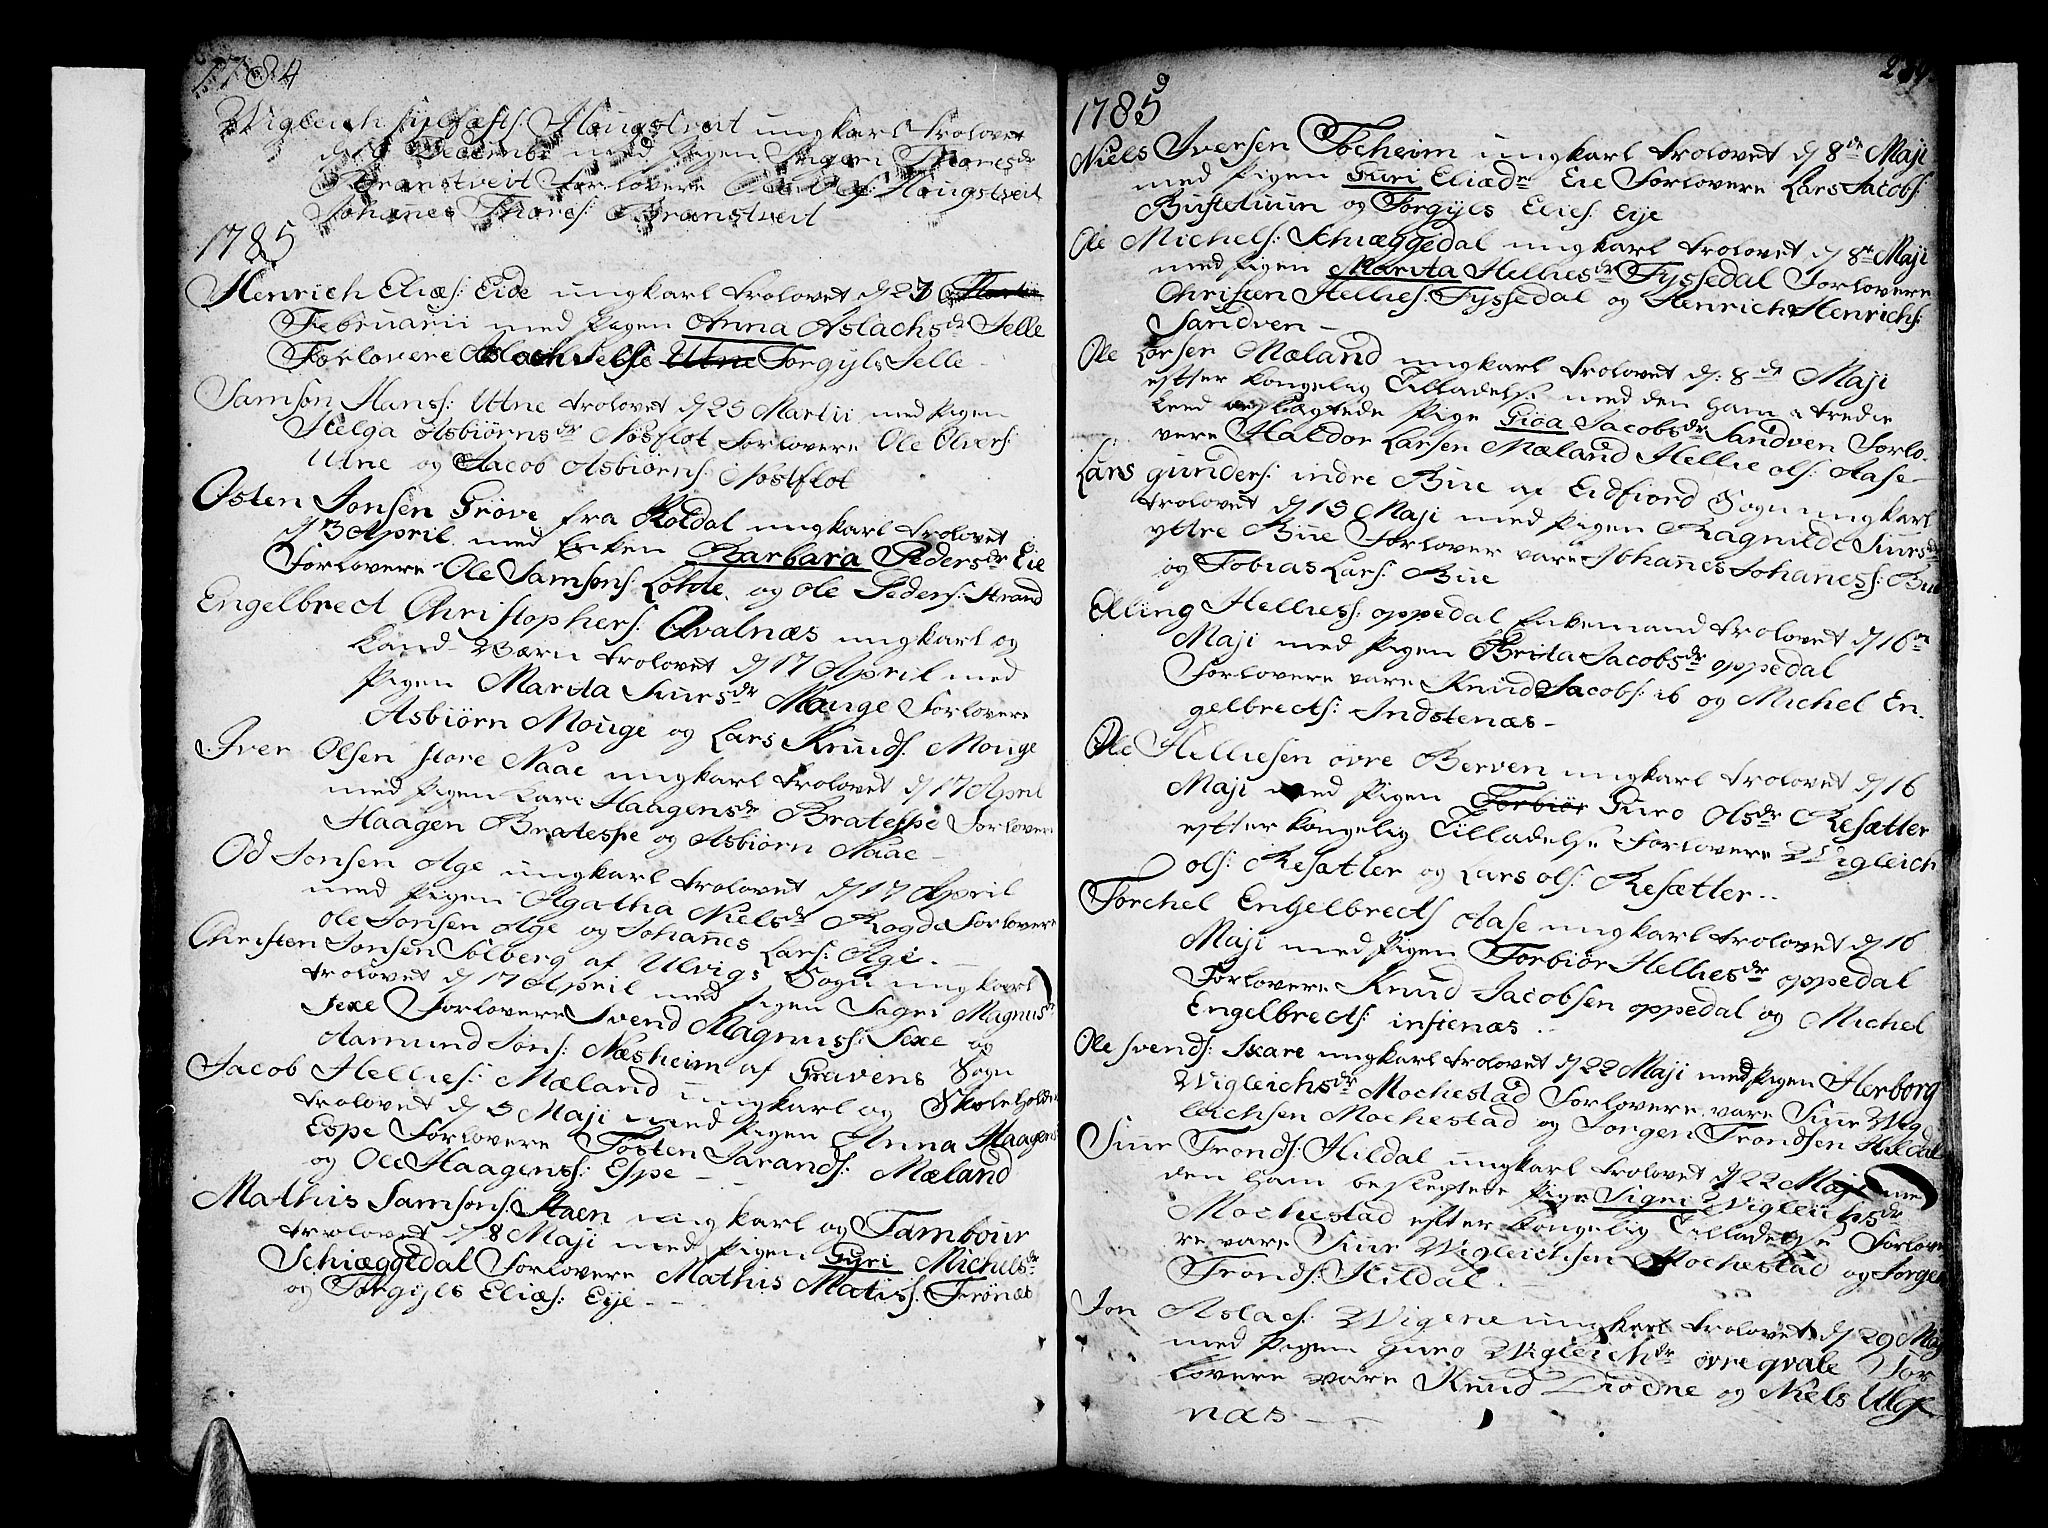 1784
Wigleich Haugstveit ungkarl trolovet
d Decembr med Pigen Ingeri Thoresdr
Branstveit Forlovere Haugstveit
Johanes Thores: Branstveit
1785
Henrich Eliæs: Eide ungkarl trolovet d 23 Martii
Februarii med Pigen Anna Aslachsdr Selle
Forlovere Aslach Selle Utne Torgyls Selle
Samson Hans: Utne trolovet d 25 Martii med Pigen
Helga Asbiørnsdr Nosflot Forlovere Ole Olvers:
Utne og Jacob Asbiørns: Nostflot
Osten Jonsen Grøve fra Roldal ungkarl trolovet
d 3 April med Enken Barbara Pedersdr Eie
Forlovere Ole Samsons: Lothe og Ole Peders: Strand
Engelbrect Christophers: Qvalnæs ungkarl og
Land-Værn trolovet d 17 April med
Pigen Marita Siursdr Mauge Forlovere
Asbiørn Mouge og Lars Knuds: Mouge
Iver Olsen store Naae ungkarl trolovet d 17 April
med Pigen Kari Haagensdr Bratespe Forlovere
Haagen Bratespe og Asbiørn Naae
Od Jonsen Age ungkarl trolovet d 17 April
med Pigen Agatha Nielsdr Rogde Forlovere
Ole Jonsen Age og Johanes Lars: Age.
Christen Jonsen Solberg af Ulvigs Sogn ungkarl
trolovet d 17 April med Pigen Sigri Magnusdr
Sexe Forlovere Svend Magnuss: Sexe og
Aamund Jons: Næsheim af Gravens Sogn
Jacob Hellies: Mæland ungkarl og Skoleholder
trolovet d 5 Maji med Pigen Anna Haagens
Espe Forlovere Tosten Jarands: Mæland
og Ole Haagens: Espe
Mathis Samsons: Staen ungkarl og Tambour
trolovet d 8 Maji med Pigen Gyri Michelsdr
Schiæggedal Forlovere Mathis Matiss: Trønæs
og Torgyls Eliæs: Eije
1785
Niels Iversen Tocheim ungkarl trolovet d 8de Maji
med Pigen Guri Eliædr Eie Forlovere Lars Jacobs:
Bustetuun og Torgyls Elies: Eije
Ole Michels: Schiæggedal ungkarl trolovet d 8de Maji
med Pigen Marita Helliesdr Tyssedal Forlovere
Christen Hellies: Tyssedal og Henrich Henrichs:
Sandven
Ole Larsen Mæland ungkarl trolovet d: 8de Maji
efter kongelig Tilladelse med den ham i tredie
Leed beslægtede Pige Gioa Jacobsdr Sandven Forlo-
vere Haldor Larsen Mæland Hellie ols: Aase
Lars gunders: indre Bue af Eidfiord Sogn ungkarl
trolovet d 15 Maji med Pigen Ragnilde Siursdr
yttre Bue Forlover vare Johanes Johaness: Bue
og Tobias Lars: Bue
Elling Hellies: oppedal Enkemand trolovet d 16de
Maji med Pigen Brita Jacobsdr oppedal
Forlovere vare Knud Jacobs: ib og Michel En-
gelbrects: Indstenæs
Ole Helliesen øvre Berven ungkarl trolovet d 16
Maji med Pigen Torbiør Guro Olsdr Resætter
efter kongelig Tilladelse Forlovere Wigleich
ols: Resætter og Lars ols: Resætter
Torchel Engelbrects Aase ungkarl trolovet d 16
Maji med Pigen Torbiør Helliesdr oppedal
Forlovere Knud Jacobsen oppedal og Michel
Engelbrects: instenæs
Ole Svends: Skare ungkarl trolovet d 22 Maji med Pigen Herborg
Wigleichsdr Mochestad Forlovere vare Siur Wig
leichsen Mochestad og Jorgen Trondsen Hildal
Siur Tronds: Hildal ungkarl trolovet d 22 Maji med
den ham beslegtede Pige Sigri Wigleichsdr
Mochestad efter kongelig Tilladelse Forlove
re vare Siur Wigleichsen Mochestad og Jorgen
Tronds: Hildal
Jon Aslacs: Wigene ungkarl trolovet d 29 Maj
med Pigen Guro Wigleichdr øvre qvale For
lovere vare Knud Diødne og Niels Ulge
næs